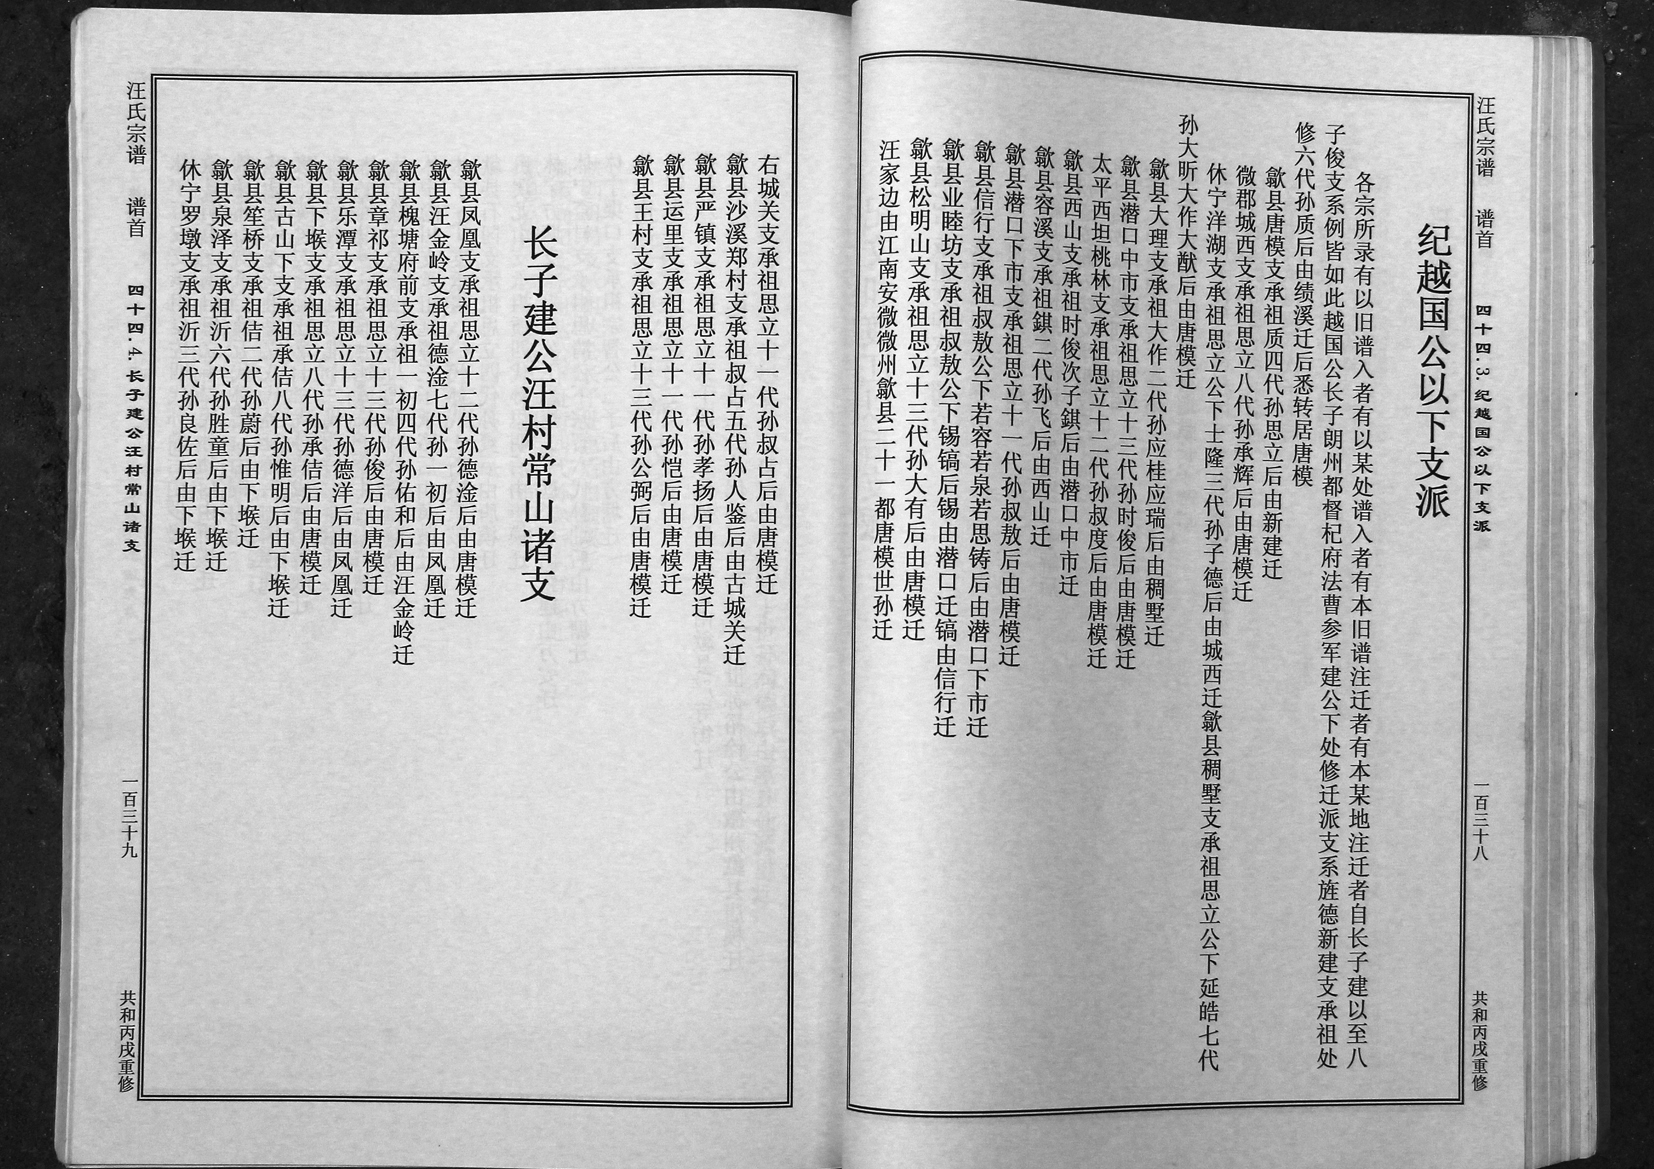 汪氏宗谱 谱首 四十四.3.纪越国公以下支派 一百三十八 共和丙戌重修
纪越国公以下支派
各宗所录有以旧谱入者有以某处谱入者有本旧谱注迁者有本某地注迁者自长子建以至八
子俊支系例皆如此越国公长子朗州都督杞府法曹参军建公下处修迁派支系旌德新建支承祖处
修六代孙质后由绩溪迁后悉转居唐模
歙县唐模支承祖质四代孙思立后由新建迁
微郡城西支承祖思立八代孙承辉后由唐模迁
休宁洋湖支承祖思立公下士隆三代孙子德后由城西迁歙县稠墅支承祖思立公下延皓七代
孙大昕大作大猷后由唐模迁
歙县大理支承祖大作二代孙应桂应瑞后由稠墅迁
歙县潜口中市支承祖思立十三代孙时俊后由唐模迁
太平西坦桃林支承祖思立十二代孙叔度后由唐模迁
歙县西山支承祖时俊次子錤后由潜口中市迁
歙县容溪支承祖錤二代孙飞后由西山迁
歙县潜口下市支承祖思立十一代孙叔敖后由唐模迁
歙县信行支承祖叔敖公下若容若泉若思铸后由潜口下市迁
歙县业睦坊支承祖叔敖公下锡镐后锡由潜口迁镐由信行迁
歙县松明山支承祖思立十三代孙大有后由唐模迁
汪家边由江南安微微州歙县二十一都唐模世孙迁
右城关支承祖思立十一代孙叔占后由唐模迁
歙县沙溪郑村支承祖叔占五代孙人鉴后由古城关迁
歙县严镇支承祖思立十一代孙孝扬后由唐模迁
歙县运里支承祖思立十一代孙恺后由唐模迁
歙县王村支承祖思立十三代孙公弼后由唐模迁
长子建公汪村常山诸支
歙县凤凰支承祖思立十二代孙德淦后由唐模迁
歙县汪金岭支承祖德淦七代孙一初后由凤凰迁
歙县槐塘府前支承祖一初四代孙佑和后由汪金岭迁
歙县章祁支承祖思立十三代孙俊后由唐模迁
歙县乐潭支承祖思立十三代孙德洋后由凤凰迁
歙县下堠支承祖思立八代孙承佶后由唐模迁
歙县古山下支承祖承佶八代孙惟明后由下堠迁
歙县笙桥支承祖佶二代孙蔚后由下堠迁
歙县泉泽支承祖沂六代孙胜童后由下堠迁
休宁罗墩支承祖沂三代孙良佐后由下堠迁
汪氏宗谱 谱首 四十四.4.长子建公汪村常山诸支 一百三十九 共和丙戌重修